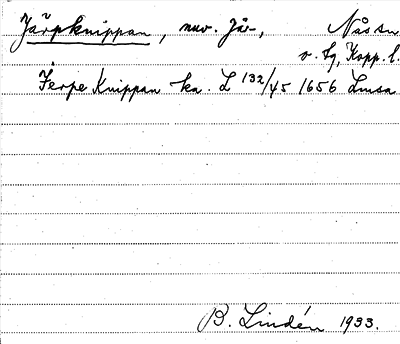 Järpknippan, nuv. Jär-, Nås sn
v. fg, Kopp. l.
Jerpe Knippan ka. L 132/45 1656 Lmsa
B. Lindén 1933.